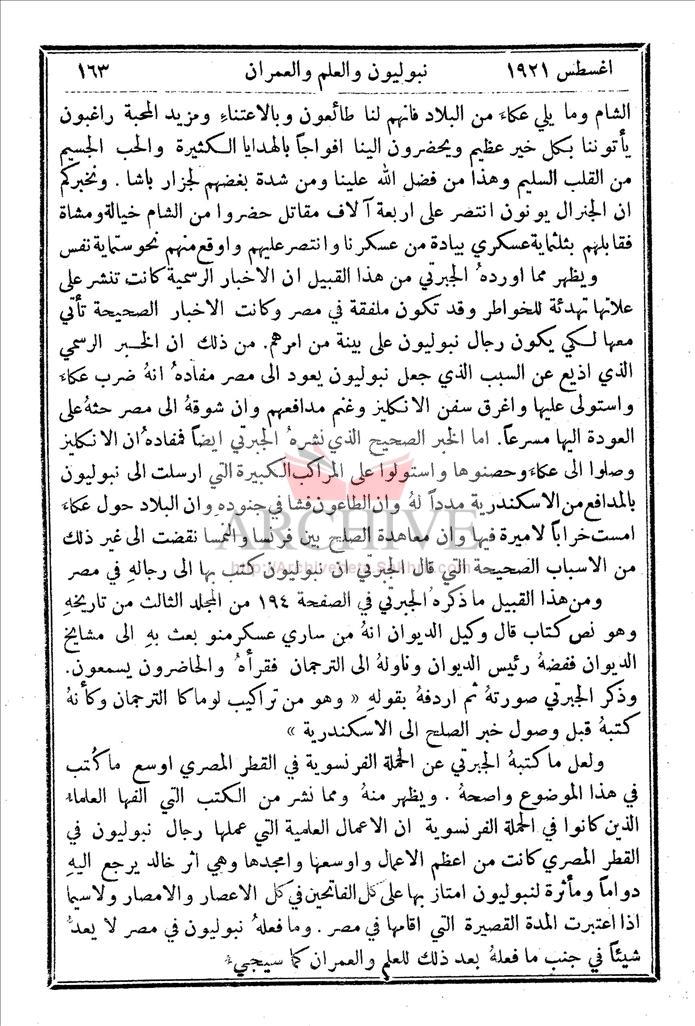 اغسطس ١٩٢١ نبوليون والعلم والعمران ١٦٣
الشام وما يلي عكاء من البلاد فانهم لنا طائعون وبالاعتناء ومزيد المحبة راغبون
يأتوننا بكل خير عظيم ويحضرون الينا افواجاً بالهدايا الكثيرة والحب الجسيم
من القلب السليم وهذا من فضل الله علينا ومن شدة بغضهم لجزار باشا . ونخبركم
ان الجنرال يونون انتصر على اربعة آلاف مقاتل حضروا من الشام خيالة ومشاة
فقابلهم بثلثماية عسكري بيادة من عسكرنا وانتصر عليهم واوقع منهم نحو ستماية نفس
ويظهر مما اوردهُ الجبرتي من هذا القبيل ان الاخبار الرسمية كانت تنشر على
علاتها تهدئة للخواطر وقد تكون ملفقة في مصر وكانت الاخبار الصحيحة تأتي
معها لكي يكون رجال نبوليون على بينة من امرهم. من ذلك ان الخبر الرسمي
الذي اذيع عن السبب الذي جعل نبوليون يعود الى مصر مفادهُ انهُ ضرب عكاء
واستولى عليها واغرق سفن الانكليز وغنم مدافعهم وان شوقهُ الى مصر حثهُ على
العودة اليها مسرعاً. اما الخبر الصحيح الذي نشرهُ الجبرتي ايضاً فمفادهُ ان الانكليز
وصلوا الى عكاء وحصنوها واستولوا على المراكب الكبيرة التي ارسلت الى نبوليون
بالمدافع من الاسكندرية مدداً لهُ وان الطاعون فشا في جنوده وان البلاد حول عكاء
امست خراباً لاميرة فيها وان معاهدة الصلح بين فرنسا والنمسا نقضت الى غير ذلك
من الاسباب الصحيحة التي قال الجبرتي ان نبوليون كتب بها الى رجالهِ في مصر
ومن هذا القبيل ما ذكرهُ الجبرتي في الصفحة ١٩٤ من المجلد الثالث من تاريخهِ
وهو نص كتاب قال وكيل الديوان انهُ من ساري عسكر منو بعث بهِ الى مشايخ
الديوان ففضهُ رئيس الديوان وناولهُ الى الترجمان فقرأهُ والحاضرون يسمعون.
وذكر الجبرتي صورتهُ ثم اردفهُ بقولهِ « وهو من تراكيب لوماكا الترجمان وكأنهُ
كتبهُ قبل وصول خبر الصلح الى الاسكندرية »
ولعل ما كتبهُ الجبرتي عن الحملة الفرنسوية في القطر المصري اوسع ما كُتب
في هذا الموضوع واصحهُ . ويظهر منهُ ومما نشر من الكتب التي الفها العلماء
الذين كانوا في الحملة الفرنسوية ان الاعمال العلمية التي عملها رجال نبوليون في
القطر المصري كانت من اعظم الاعمال واوسعها وامجدها وهي اثر خالد يرجع اليهِ
دواماً ومأثرة لنبوليون امتاز بها على كل الفاتحين في كل الاعصار والامصار ولاسيما
اذا اعتبرت المدة القصيرة التي اقامها في مصر . وما فعلهُ نبوليون في مصر لا يعدُّ
شيئاً في جنب ما فعلهُ بعد ذلك للعلم والعمران كما سيجيء
ARCHIVE
http://Archivebeta.Sakhrit.com